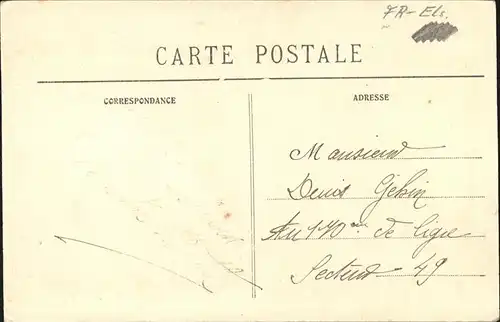 FR-Els.
CARTE POSTALE
CORRESPONDANCE
ADRESSE
Monsieur
Denis Gehin
Au 170ème de ligne
Secteur 49